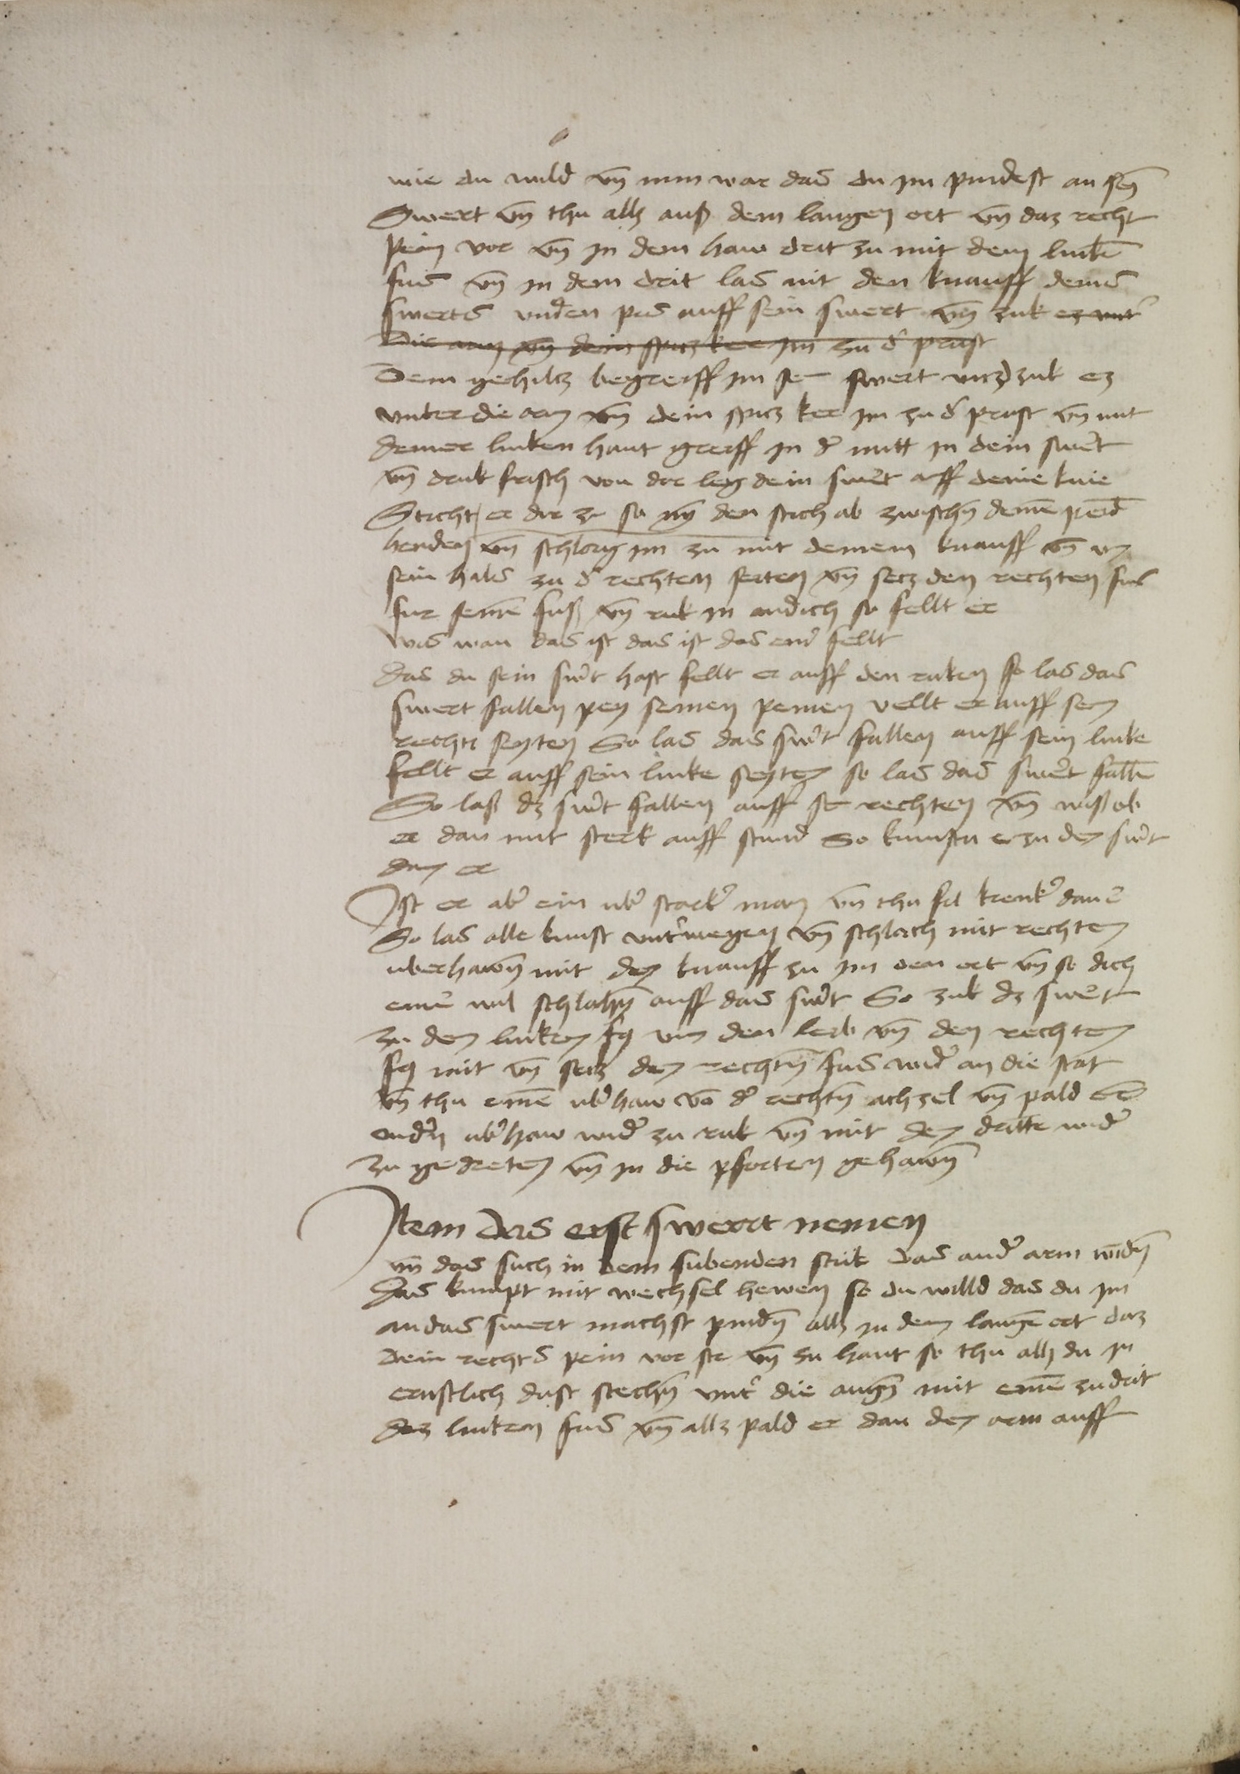 wie du wild vn̄ nim war das du im pindest an sein̄
Swert vn̄ thu alls auß dem langen ort vn̄ daz recht
pein vor vn̄ in dem haw drit zu mit dem linkē
fus vn̄ in dem drit las mit den knauff deins
swertz vnden pas auff sein swert vn̄ zuk ez vnt̄
Die arm vn̄ dein spicz ker im zu d̄ prust
Dem gehilcz begreiff im sein swert vn̄ zuk ez
vnter die arm vn̄ dein spicz ker im zu d̄ prust vn̄ mit
deiner linken hant greiff in d̄ mitt in dein swert
vn̄ druk frisch von dor leg dein swert auff deine knie
Sticht er dir zu so nym̄ den stich ab zwischn̄ deinē peid
henden vn̄ schlag im zu mit deinem knauff vm̄
sein hals zu d̄ rechten seiten vn̄ secz den rechten fus
fur seinē fuß vn̄ ruk in an dich so fellt er
was man das ist das ist das end fellt
das du sein swert hast fellt er auff den ruken so las das
swert fallen pey seinen peinen vellt er auff sein
rechte seyten So las das swert fallen auff sein linke
fellt er auff sein linke seyten so las das swert fallē
So laß dz swert fallen auff sein rechten vn̄ wiß ob
er dan mit sterk auff stund So kumstu e zu dem swert
dan er
Ist er aber ein uber starker man vn̄ thu fil krenker dan er
So las alle kunst unterwegen vn̄ schlach mit rechten
uberhawn̄ mit dem knauff zu im den ort vn̄ so dich
einer wil schlahn̄ auff das swert So zuk dz swert
zu dem linken fus um den leib vn̄ den rechten
fus mit vn̄ secz den rechtn̄ fus wider an die stat
vn̄ thu einē uberhaw vō d̄ rechtn̄ achzel vn̄ pald ein
andern uberhaw wider zu ruk vn̄ mit dem dritte wider
zu gedreten vn̄ in die pforten gehawn̄
Item das erst swerrt nemen
vn̄ das such in dem subenden stuk das ander arm windn̄
das kumpt mit wechsel hewen so du willd das du im
an das swert machst pindn̄ alls in dem langē ort daz
dein rechts pein vor ste vn̄ zu hant so thu alls du in
ernstlich dust stechn̄ vnter die augn̄ mit einē zudrit
dez linken fus vn̄ alls pald er dan den arm auff